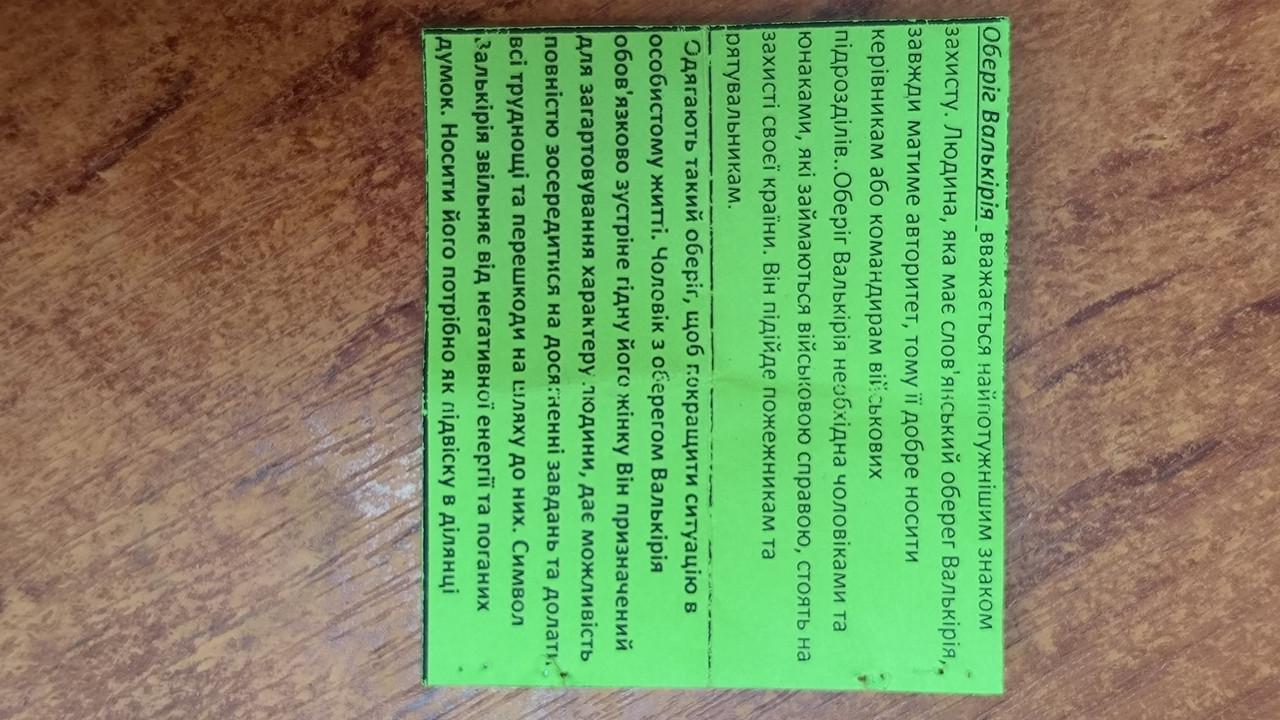 Оберіг Валькірія вважається найпотужнішим знаком
захисту. Людина, яка має слов'янський оберег Валькірія,
завжди матиме авторитет, тому її добре носити
керівникам або командирам військових
підрозділів..Оберіг Валькірія необхідна чоловіками та
юнаками, які займаються військовою справою, стоять на
захисті своєї країни. Він підійде пожежникам та
рятувальникам.
Одягають такий оберіг, щоб покращити ситуацію в
особистому житті. Чоловік з оберегом Валькірія
обов'язково зустріне гідну його жінку Він призначений
для загартовування характеру людини, дає можливість
повністю зосередитися на досягненні завдань та долати
всі труднощі та перешкоди на шляху до них. Символ
Валькірія звільняє від негативної енергії та поганих
думок. Носити його потрібно як підвіску в ділянці